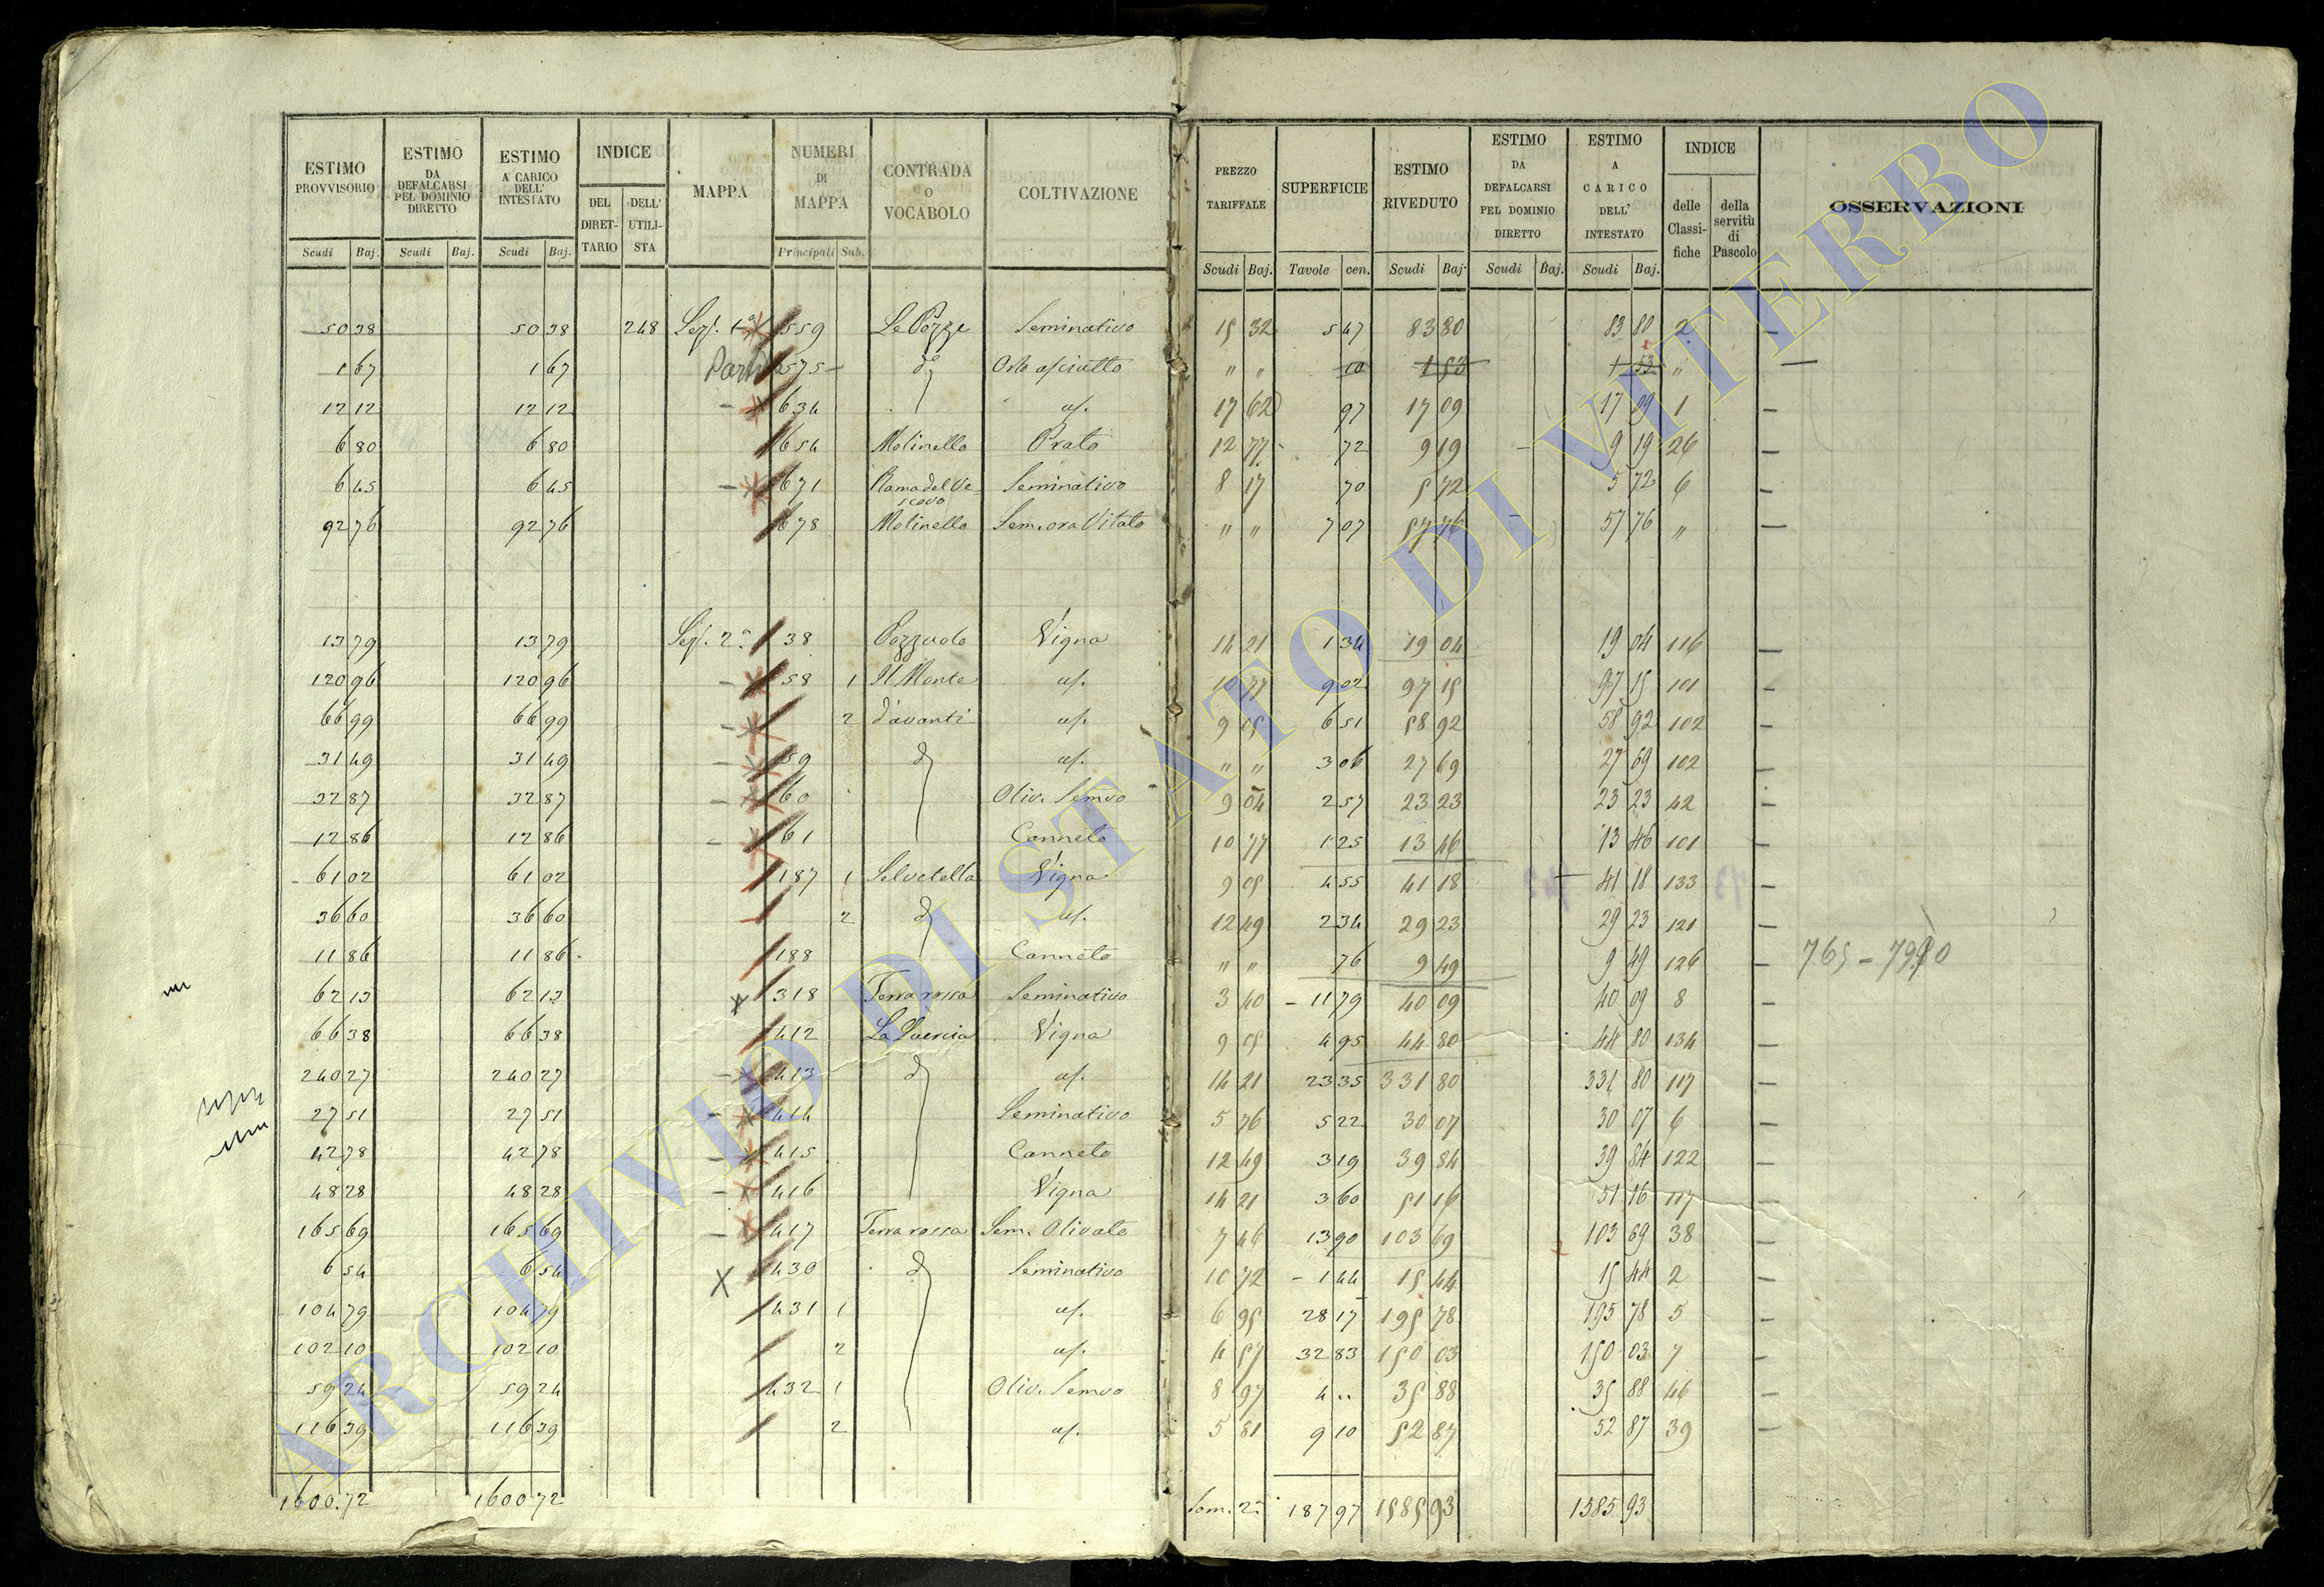 ESTIMO PROVVISORIO | ESTIMO DA DEFALCARSI PEL DOMINIO DIRETTO | ESTIMO A CARICO DELL' INTESTATO | INDICE | MAPPA | NUMERI DI MAPPA | CONTRADA O VOCABOLO | COLTIVAZIONE | PREZZO TARIFFALE | SUPERFICIE | ESTIMO RIVEDUTO | ESTIMO DA DEFALCARSI PEL DOMINIO DIRETTO | ESTIMO A CARICO DELL' INTESTATO | INDICE | OSSERVAZIONI
DEL DIRET-TARIO | DELL' UTILI-STA | delle Classi-fiche | della servitù di Pascolo
Scudi | Baj. | Scudi | Baj. | Scudi | Baj. | Principali | Sub. | Scudi | Baj. | Tavole | cen. | Scudi | Baj. | Scudi | Baj. | Scudi | Baj.
50 38 | 50 38 | 248 | Sez. 1a | 559 | Le Pozze | Seminativo | 15 32 | 5 47 | 83 80 | 83 80 | 2 | —
1 67 | 1 67 | 575 | do | Orto asciutto | " " | 10 | 1 53 | 1 53 | " | —
12 12 | 12 12 | 634 | 17 62 | 97 | 17 09 | 17 09 | 1 | —
6 80 | 6 80 | 654 | Molinella | Prato | 12 77 | 72 | 9 19 | 9 19 | 26 | —
6 45 | 6 45 | 671 | Rama del Ve-scovo | Seminativo | 8 17 | 70 | 5 72 | 5 72 | 6 | —
92 76 | 92 76 | 678 | Molinella | Sem. ora Vitato | " " | 7 07 | 57 76 | 57 76 | " | —
13 79 | 13 79 | Sez. 2a | 38 | Pozzuolo | Vigna | 14 21 | 1 34 | 19 04 | 19 04 | 116 | —
120 96 | 120 96 | 58 | 1 | Il Monte | 10 77 | 9 02 | 97 15 | 97 15 | 101 | —
66 99 | 66 99 | 2 | d'avanti | 9 05 | 6 51 | 58 92 | 58 92 | 102 | —
31 49 | 31 49 | 59 | d | " " | 3 06 | 27 69 | 27 69 | 102 | —
32 87 | 32 87 | 60 | Oliv. Semvo | 9 04 | 2 57 | 23 23 | 23 23 | 42 | —
12 86 | 12 86 | 61 | Canneto | 10 77 | 1 25 | 13 46 | 13 46 | 101 | —
61 02 | 61 02 | 187 | 1 | Selvetella | Vigna | 9 05 | 4 55 | 41 18 | 41 18 | 133 | —
36 60 | 36 60 | 2 | d | 12 49 | 2 34 | 29 23 | 29 23 | 121 | —
11 86 | 11 86 | 188 | Canneto | " " | 76 | 9 49 | 9 49 | 126 | —
62 13 | 62 13 | 318 | Terra rossa | Seminativo | 3 40 | 11 79 | 40 09 | 40 09 | 8 | —
66 38 | 66 38 | 412 | La Quercia | Vigna | 9 05 | 4 95 | 44 80 | 44 80 | 134 | —
240 27 | 240 27 | 413 | d | 14 21 | 23 35 | 331 80 | 331 80 | 117 | —
27 51 | 27 51 | 414 | Seminativo | 5 76 | 5 22 | 30 07 | 30 07 | 6 | —
42 78 | 42 78 | 415 | Canneto | 12 49 | 3 19 | 39 84 | 39 84 | 122 | —
48 28 | 48 28 | 416 | Vigna | 14 21 | 3 60 | 51 16 | 51 16 | 117 | —
165 69 | 165 69 | 417 | Terra rossa | Sem. Olivato | 7 46 | 13 90 | 103 69 | 103 69 | 38 | —
6 54 | 6 54 | 430 | d | Seminativo | 10 72 | 1 44 | 15 44 | 15 44 | 2 | —
104 79 | 104 79 | 431 | 1 | 6 95 | 28 17 | 195 78 | 195 78 | 5 | —
102 10 | 102 10 | 2 | 4 57 | 32 83 | 150 03 | 150 03 | 7 | —
59 24 | 59 24 | 432 | 1 | Oliv. Semvo | 8 97 | 4 .. | 35 88 | 35 88 | 46 | —
116 39 | 116 39 | 2 | 5 81 | 9 10 | 52 87 | 52 87 | 39 | —
1600.72 | 1600 72 | Som. 2a | 187 97 | 1585 93 | 1585 93
ARCHIVIO DI STATO DI VITERBO